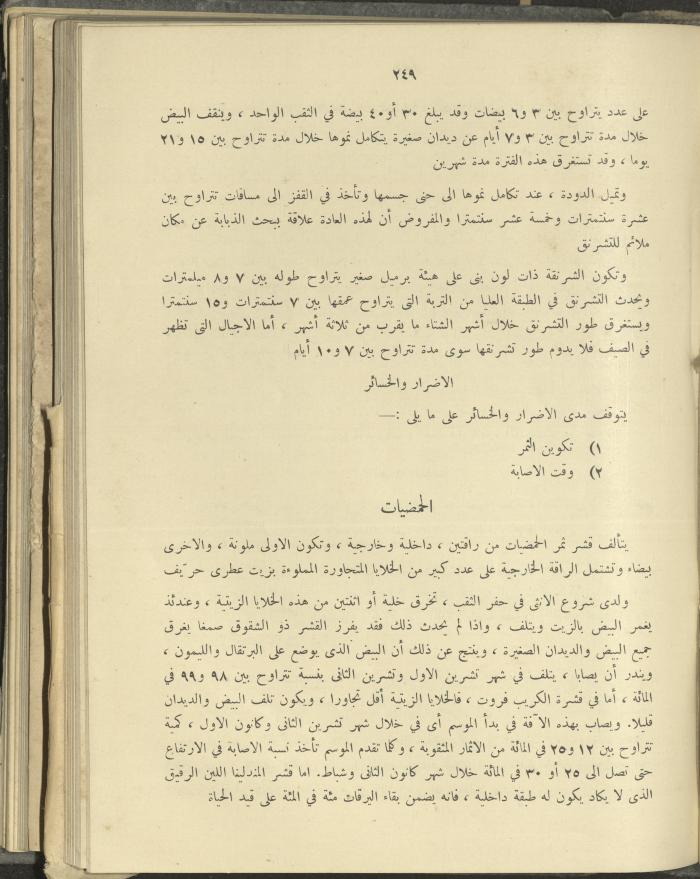 ٢٤٩
على عدد يتراوح بين ٣ و٦ بيضات وقد يبلغ ٣٠ أو ٤٠ بيضة في الثقب الواحد ، وينقف البيض
خلال مدة تتراوح بين ٣ و٧ أيام عن ديدان صغيرة يتكامل نموها خلال مدة تتراوح بين ١٥ و٢١
يوما ، وقد تستغرق هذه الفترة مدة شهرين
وتميل الدودة ، عند تكامل نموها الى حنى جسمها وتأخذ في القفز الى مسافات تتراوح بين
عشرة سنتمترات وخمسة عشر سنتمترا والمفروض أن لهذه العادة علاقة ببحث الذبابة عن مكان
ملائم للتشرنق
وتكون الشرنقة ذات لون بنى على هيئة برميل صغير يتراوح طوله بين ٧ و٨ ميلمترات
ويحدث التشرنق في الطبقة العليا من التربة التى يتراوح عمقها بين ٧ سنتمترات و١٥ سنتمترا
ويستغرق طور التشرنق خلال أشهر الشتاء ما يقرب من ثلاثة أشهر ، أما الاجيال التى تظهر
في الصيف فلا يدوم طور تشرنقها سوى مدة تتراوح بين ٧ و١٠ أيام
الاضرار والخسائر
يتوقف مدى الاضرار والخسائر على ما يلى :—
١) تكوين الثمر
٢) وقت الاصابة
الحمضيات
يتألف قشر ثمر الحمضيات من راقتين ، داخلية وخارجية ، وتكون الاولى ملونة ، والاخرى
بيضاء وتشتمل الراقة الخارجية على عدد كبير من الخلايا المتجاورة المملوءة بزيت عطرى حريف
ولدى شروع الانثى في حفر الثقب ، تخرق خلية أو اثنتين من هذه الخلايا الزيتية ، وعندئذ
يغمر البيض بالزيت ويتلف ، واذا لم يحدث ذلك فقد يفرز القشر ذو الشقوق صمغا يغرق
جميع البيض والديدان الصغيرة ، وينتج عن ذلك أن البيض الذى يوضع على البرتقال والليمون ،
ويندر أن يصابا ، يتلف في شهر تشرين الاول وتشرين الثانى بنسبة تتراوح بين ٩٨ و٩٩ في
المائة ، أما في قشرة الكريب فروت ، فالخلايا الزيتية أقل تجاورا ، ويكون تلف البيض والديدان
قليلا. ويصاب بهذه الآفة في بدأ الموسم أى في خلال شهر تشرين الثانى وكانون الاول ، كمية
تتراوح بين ١٢ و٢٥ في المائة من الاثمار المثقوبة ، وكلما تقدم الموسم تأخذ نسبة الاصابة في الارتفاع
حتى تصل الى ٢٥ أو ٣٠ في المائة خلال شهر كانون الثانى وشباط. اما قشر المندلينا اللين الرقيق
الذى لا يكاد يكون له طبقة داخلية ، فانه يضمن بقاء اليرقات مئة في المئة على قيد الحياة